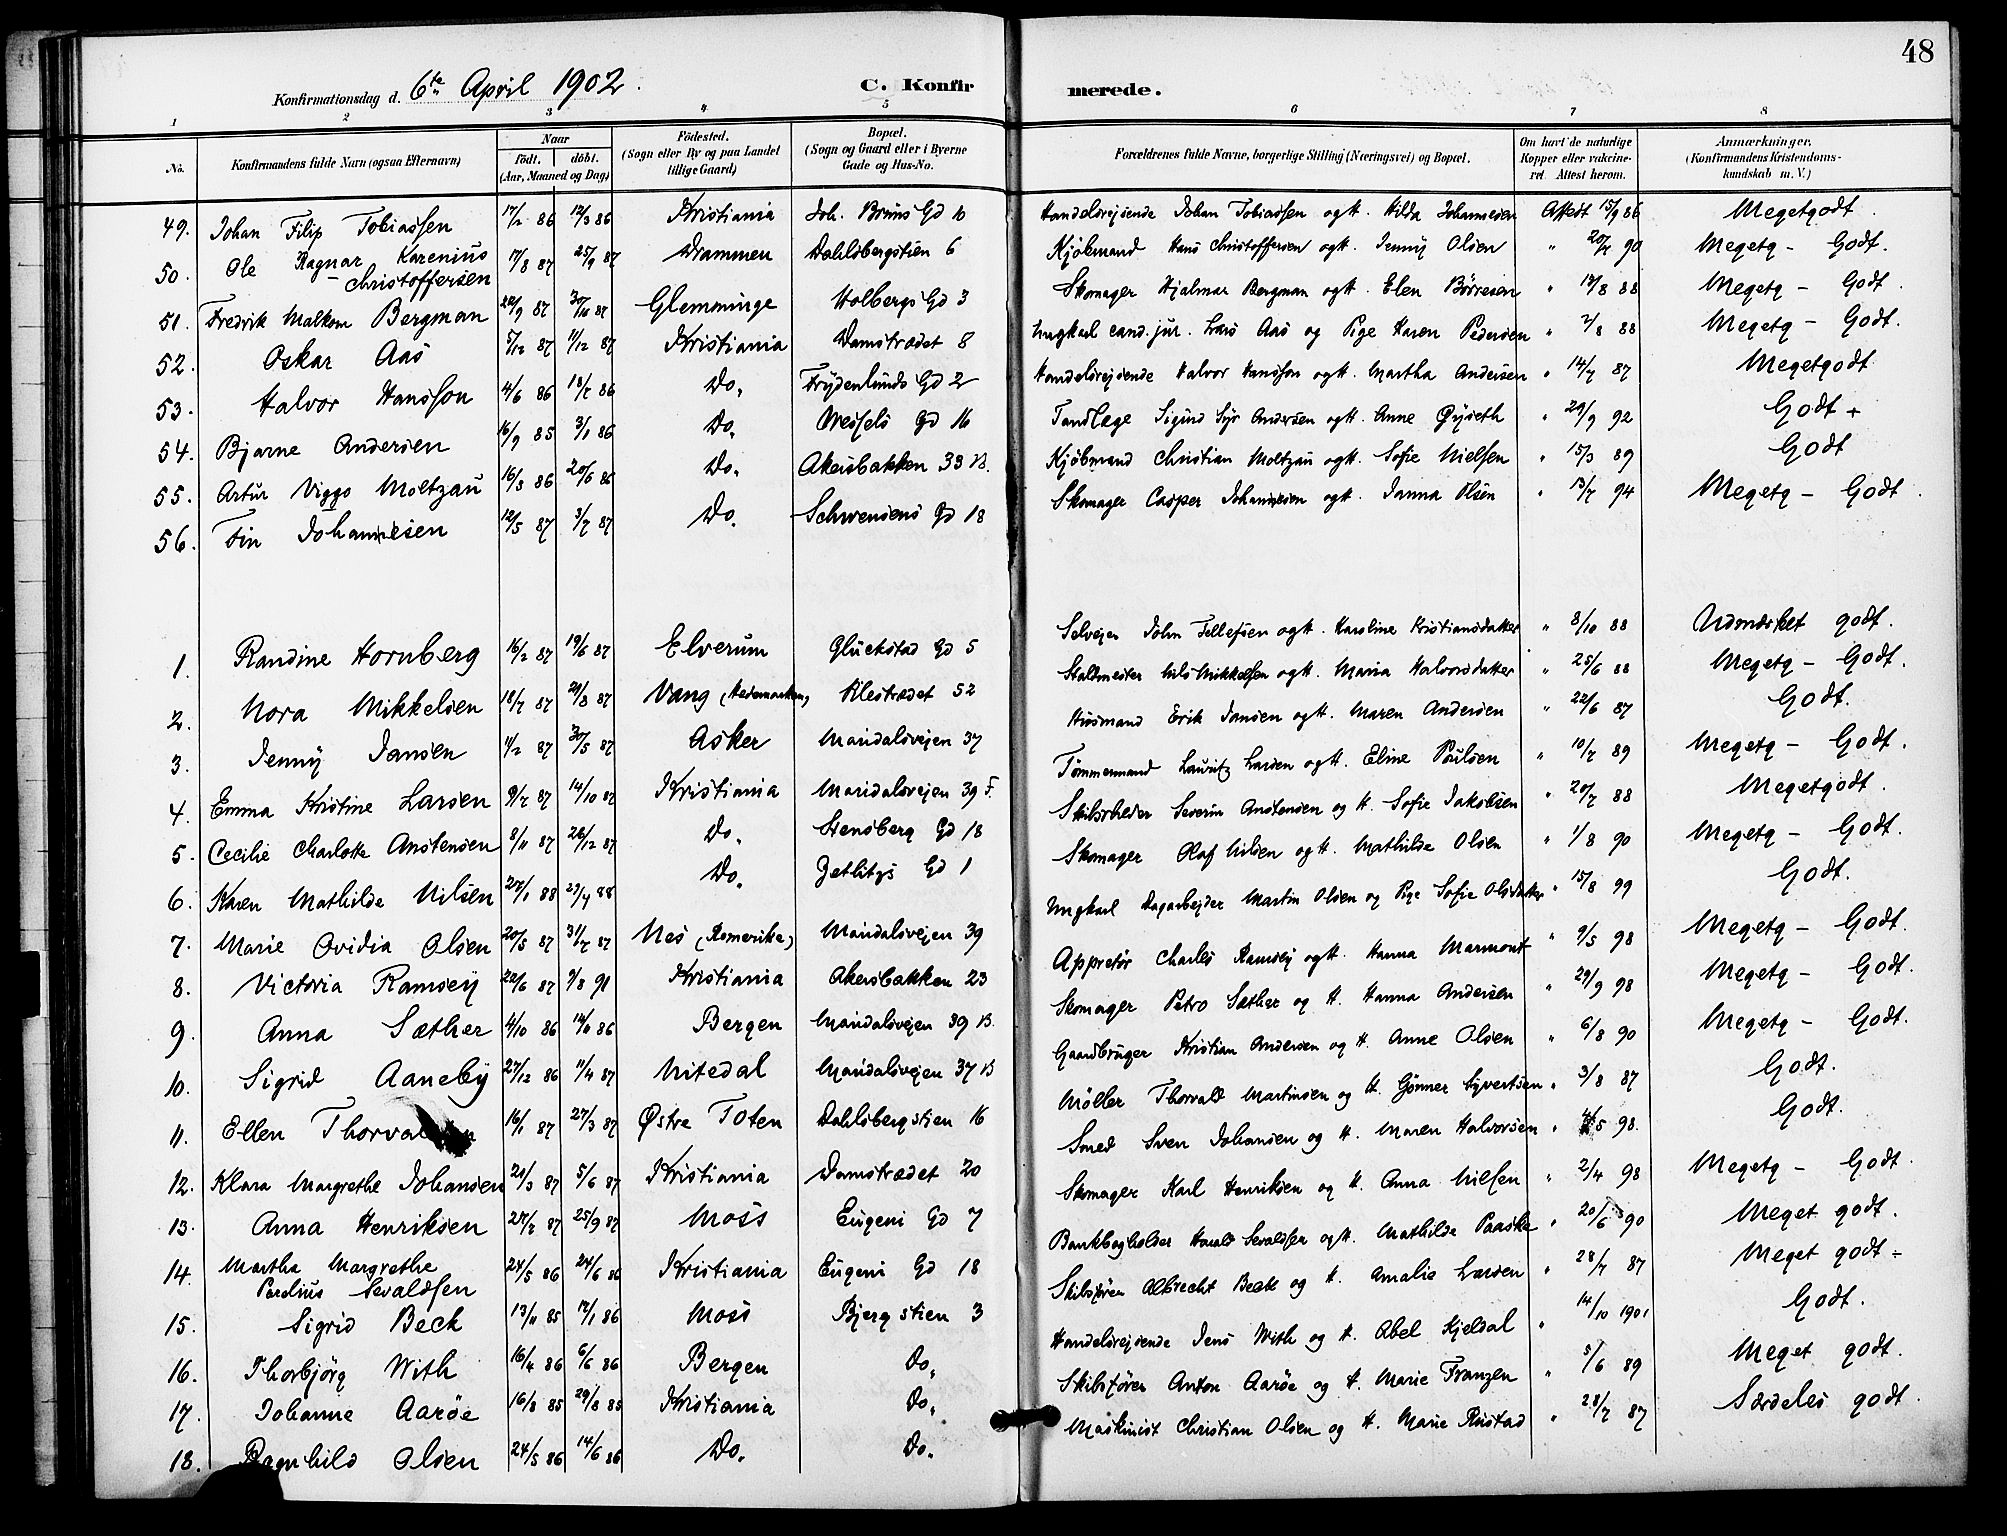 48
Konfirmationsdag d. 6te April 1902. C. Konfir merede.
1 2 3 4 5 6 7 8
No. Konfirmandens fulde Navn (ogsaa Efternavn) Naar födt. döbt. (Aar, Maaned og Dag) Födested. (Sogn eller By og paa Landet tillige Gaard) Bopæl. (Sogn og Gaard eller i Byerne Gade og Hus-No. Forældrenes fulde Navne, borgerlige Stilling (Næringsvei) og Bopæl. Om havt de naturlige Kopper eller vaccineret. Attest herom. Anmærkninger. (Konfirmandens Kristendomskundskab m. V.)
49. Johan Filip Tobiassen 17/2 86 12/3 86 Kristiania Joh. Bruns Gd 10 Handelsrejsende Johan Tobiassen og H. Hilda Johannesen Attest 15/9 86 Megetgodt
50. Ole Ragnar Karenius Christoffersen 17/8 87 25/9 87 Drammen Dahlsbergstien 6 Kjöbmand Hans Christoffersen og H. Jenny Olsen " 20/7 90 Megetg - Godt.
51. Fredrik Malkom Bergman 22/9 87 30/10 87 Glemminge Holbergs Gd 3 Skomager Hjalmar Bergman og H. Elen Börresen " 18/8 88 Megetg - Godt
52. Oskar Aas 5/12 87 11/12 87 Kristiania Damstrædet 8 Ungkarl cand. jur. Lars Aas og Pige Karen Pedersen " 2/8 88 Megetg - Godt.
53. Halvor Hansson 4/6 86 18/7 86 Do. Frydenlunds Gd 2 Handelsrejsende Halvor Hansson og H. Martha Andersen " 14/7 87 Megetgodt
54. Bjarne Andersen 16/9 85 3/1 86 Do. Wessels Gd 16 Tandlæge Sigurd Syr Andersen og H. Anne " 29/9 92 Godt +
55. Artur Viggo Moltzau 16/3 86 20/6 86 Do. Akersbakken 33 B. Kjöbmand Christian Moltzau og H. Sofie Nielsen " 15/3 89 Godt
56. Fin Johannesen 12/5 87 3/7 87 Do. Schwensens Gd 18 Skomager Casper Johannesen og H. Janna Olsen " 13/7 94 Megetg - Godt.
1. Randine Hornberg 16/2 87 19/6 87 Elverum Glückstad Gd 5 Selvejer John Tellefsen og H. Karoline Kristiansdatter " 8/10 88 Udmærket godt.
2. Nora Mikkelsen 18/7 87 21/8 87 Vang (Hedemarken) Pilestrædet 52 Staldmester Nils Mikkelsen og H. Maria Halvorsdatter " 25/6 88 Megetg - Godt.
3. Jenny Jansen 11/2 87 30/5 87 Asker Maridalsvejen 37 Husmand Erik Jansen og H. Maren Andersen " 22/6 87 Godt.
4. Emma Kristine Larsen 9/7 87 14/10 87 Kristiania Maridalsvejen 39 F. Tömmermand Lauritz Larsen og H. Eline Poulsen " 10/7 89 Megetg - Godt.
5. Cecilie Charlotte Anstensen 8/11 87 26/12 87 Do. Stensberg Gd 18 Skibsrheder Severin Anstensen og H. Sofie Jakobsen " 20/7 88 Megetgodt.
6. Karen Mathilde Nilsen 27/1 88 29/4 88 Do. Zetlitzs Gd 1 Skomager Olaf Nilsen og H. Mathilde Olsen " 1/8 90 Megetg - Godt.
7. Marie Ovidia Olsen 20/5 87 31/7 87 Nes (Romerike) Maridalsvejen 39 Ungkarl Dagarbejder Martin Olsen og Pige Sofie Olsdatter " 15/8 99 Godt.
8. Victoria Ramsey 22/6 87 9/8 91 Kristiania Akersbakken 23 Appretör Charles Ramsey og H. Hanna Marmont " 9/5 98 Megetg - Godt.
9. Anna Sæther 4/10 86 14/11 86 Bergen Maridalsvejen 39 B. Skomager Petro Sæther og H. Hanna Andersen " 29/9 98 Megetg - Godt.
10. Sigrid Aaneby 27/12 86 11/4 87 Nitedal Maridalsvejen 37 B Gaardbruger Kristian Andersen og H. Anne Olsen " 6/8 90 Megetg - Godt.
11. Ellen 16/1 87 27/3 87 Østre Toten Dahlsbergstien 16 Möller Thorvald Martinsen og H. Gönner Syvertsen " 3/8 87 Godt.
12. Klara Margrethe Johansen 21/3 87 5/6 87 Kristiania Damstrædet 20 Smed Sven Johansen og H. Maren Halvorsen " 5 98. Godt.
13. Anna Henriksen 27/7 87 25/9 87 Moss Eugeni Gd 7 Skomager Karl Henriksen og H. Anna Nielsen " 2/4 98 Megetg - Godt.
14. Martha Margrethe Sevaldsen 24/5 86 24/6 86 Kristiania Eugeni Gd 18 Bankbogholder Harald Sevaldsen og H. Mathilde Paaske " 20/6 90 Meget godt.
15. Sigrid Beck 13/11 85 17/1 86 Moss Bjergstien 3 Skibsfören Albrecht Beck og H. Amalie Larsen " 28/7 87 Meget godt ÷
16. Thorbjörg With 16/4 86 6/6 86 Bergen Do. Handelsrejsende Jens With og H. Abel Kjeldal " 14/10 1901 Godt.
17. Johanne Aaröe 16/8 85 29/8 85 Kristiania Do. Skibsfören Anton Aaröe og H. Marie Franzen " 5/6 89 Meget godt.
18. Ragnhild Olsen 24/5 86 14/6 86 Do. Do. Maskinist Christian Olsen og H. Marie Rustad " 28/7 87 Særdeles godt